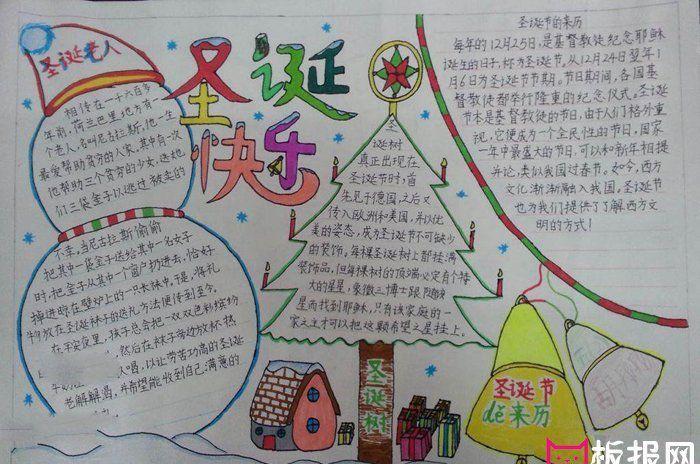 圣诞老人
相传在一千六百多
年前,荷兰巴里地方有一
个老人,名叫尼古拉斯,他一生
最爱帮助贫穷的人家。其中有一次
他帮助三个贫穷的少女,送她
们三袋金子以逃过被卖的
不幸。当尼古拉斯偷偷
把其中一袋金子送给其中一名女子
时,把金子从其中一个窗户扔进去,恰好
掉进晾在壁炉上的一只长袜中。于是,将礼
物放在圣诞袜子的送礼方法便传到至今。
在平安夜里,孩子总会把一双双色彩缤纷
然后在袜子旁边放杯热
喝,以让劳苦功高的圣诞
老解解渴,并希望能收到自己满意的
圣诞
快乐
圣
诞树
真正出现在
圣诞节时,首
先见于德国,之后又
传入欧洲和美国,并以优
美的姿态,成为圣诞节不可缺少
的装饰。每棵圣诞树上都挂满
装饰品,但每棵树的顶端必定有个特
大的星星,象徵三博士跟随该
星而找到耶稣,只有该家庭的一
家之主才可以把这颗希望之星挂上。
圣诞树
圣诞节的来历
每年的12月25日,是基督教徒纪念耶稣
诞生的日子,称为圣诞节。从12月24日至翌年1
月6日为圣诞节节期。节日期间,各国基
督教徒都举行隆重的纪念仪式。圣诞
节本是基督教徒的节日,由于人们格外重
视,它便成为一个全民性的节日,国家
一年中最盛大的节日,可以和新年相提
并论,类似我国过春节。如今,西方
文化渐渐融入我国,圣诞节
也为我们提供了了解西方文
明的方式!
圣诞节
dě来历
板报网